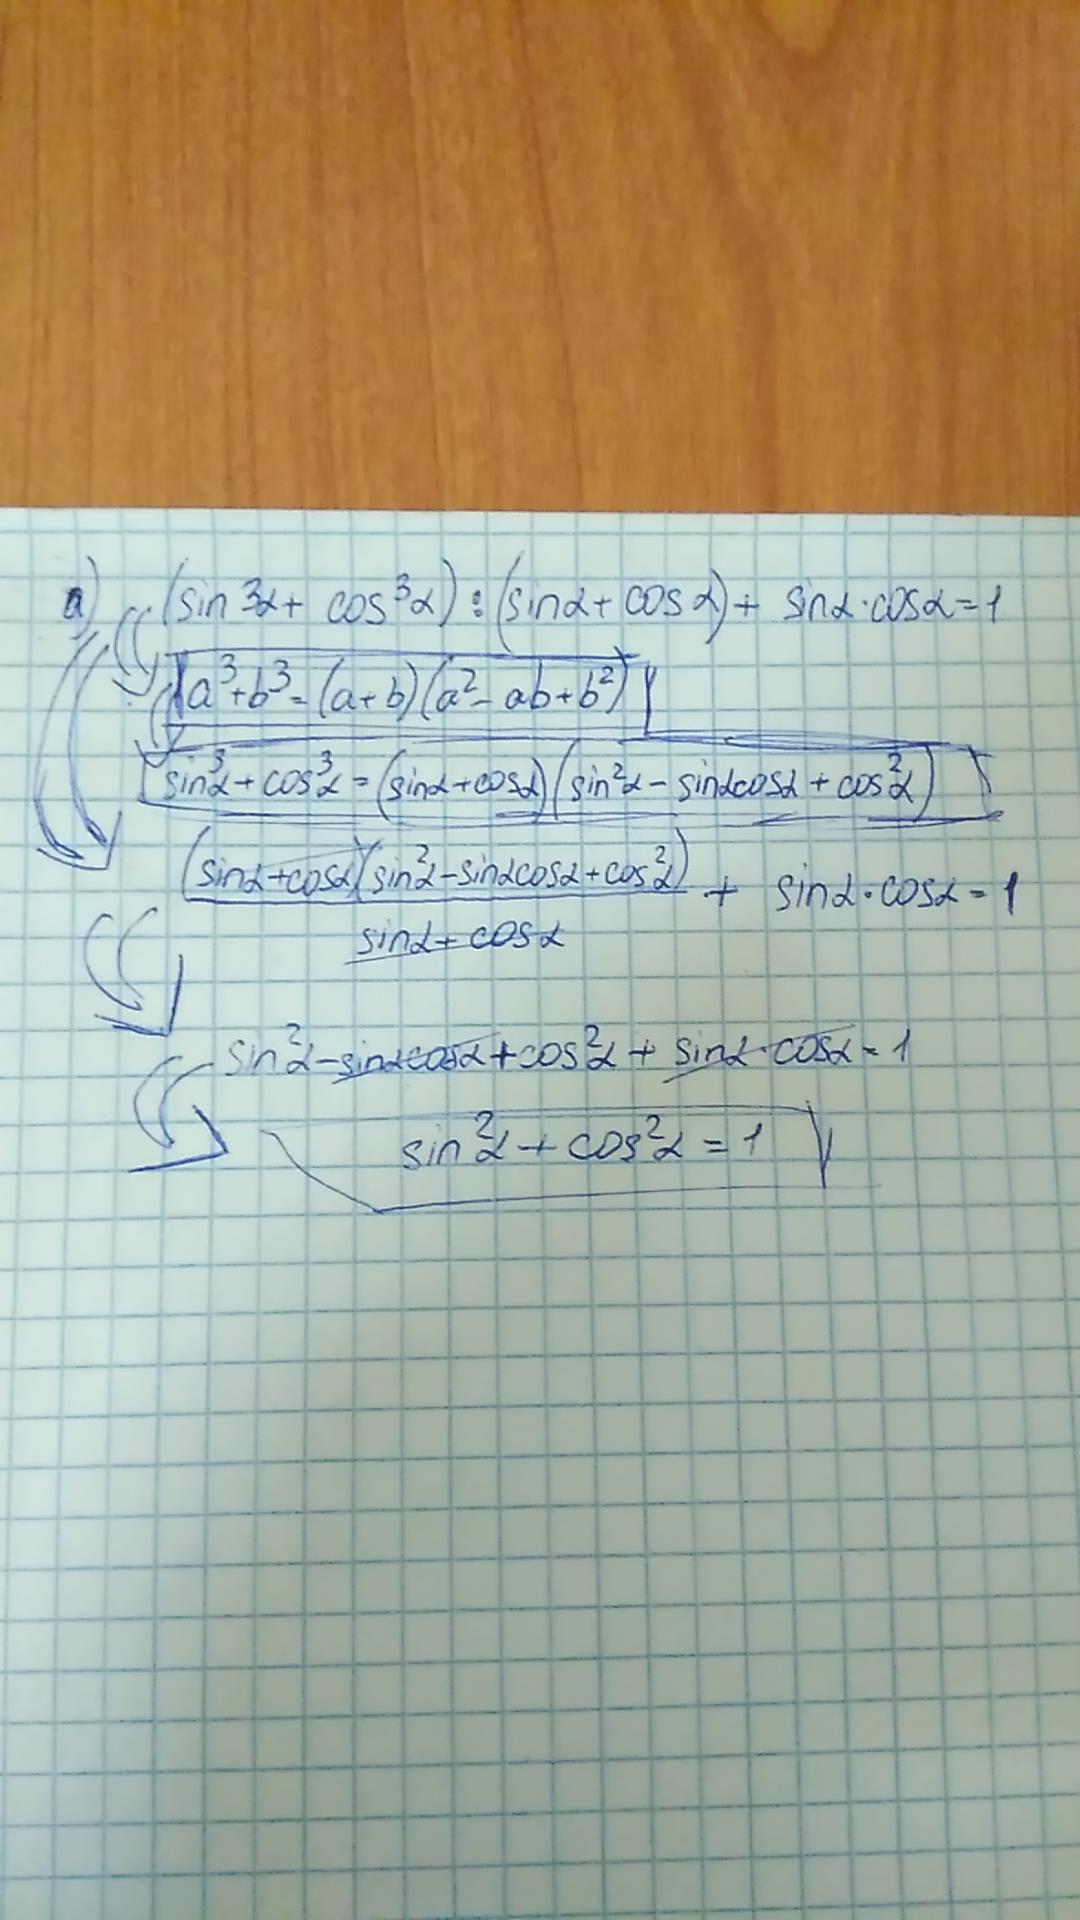 a) (sin³α + cos³α) : (sinα + cosα) + sinα · cosα = 1
a³ + b³ = (a + b)(a² - ab + b²)
sin³α + cos³α = (sinα + cosα)(sin²α - sinαcosα + cos²α)
(sinα + cosα)(sin²α - sinαcosα + cos²α) + sinα · cosα = 1
sinα + cosα
sin²α - sinαcosα + cos²α + sinα · cosα = 1
sin²α + cos²α = 1